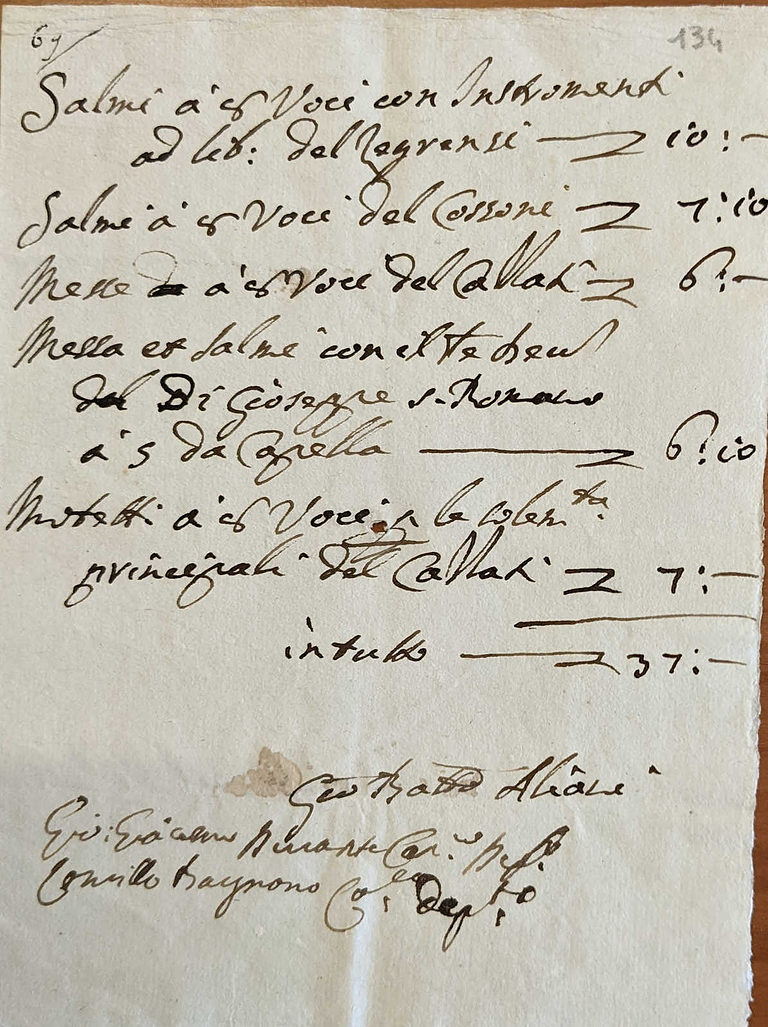 69
134
Salmi à 8 Voci con Instromenti
ad lib: del Legrensi — 10:—
Salmi à 8 Voci del Cossoni 7:10
Messe à 8 Voci del Callati 6:—
Messa et Salmi con il Te Deu
del Di Gioseppe S. Romano
à 5 da Capella — 6:10
Motetti à 8 Voci le solen.ta
principali del Callati 7:—
in tutto — 37:—
Gio Batta Aliani
Gio: Giacomo Durante
Camillo Ragnono dep.to